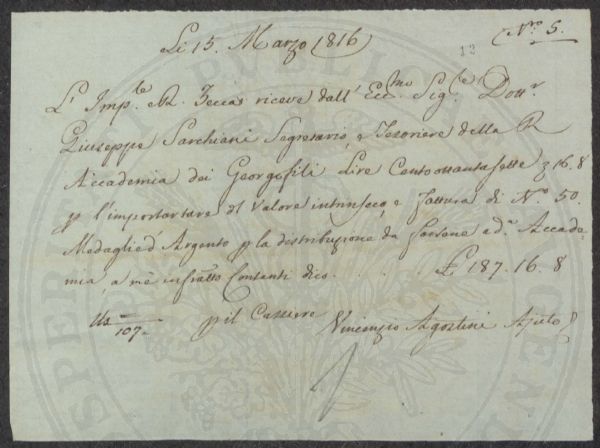 Li 15. Marzo 1816
N.ro 5.
12
L' Imp.le e R. Zecca riceve dall' Ecc.mo Sig.re Dott.r
Giuseppe Sarchiani Segretario, e Tesoriere della R.
Accademia dei Georgofili Lire Centottantasette 16.8
p l'importare del valore intrinseco, e fattura di N.o 50.
Medaglie d'Argento p la distribuzione da farsene a d.a Accade=
mia, a me infratto Contanti dico . . . . . £ 187.16.8
107
p il Cassiere
Vincenzio Agostini Ajuto